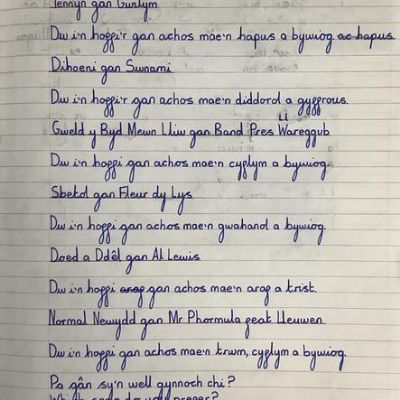 Tennyn gan Gwilym
Dw i'n hoffi'r gan achos mae'n hapus a bywiog ac hapus.
Dihoeni gan Swnami
Dw i'n hoffi'r gan achos mae'n diddorol a gyffrous.
Gweld y Byd Mewn Lliw gan Band Pres Llareggub
Dw i'n hoffi gan achos mae'n cyflym a bywiog.
Sbectol gan Fleur dy Lys
Dw i'n hoffi gan achos mae'n gwahanol a bywiog.
Doed a Ddêl gan Al Lewis
Dw i'n hoffi araf gan achos mae'n araf a trist.
Normal Newydd gan Mr Phormula feat Lleuwen
Dw i'n hoffi gan achos mae'n trwm, cyflym a bywiog.
Pa gân sy'n well gynnoch chi?
Which song do you prefer?